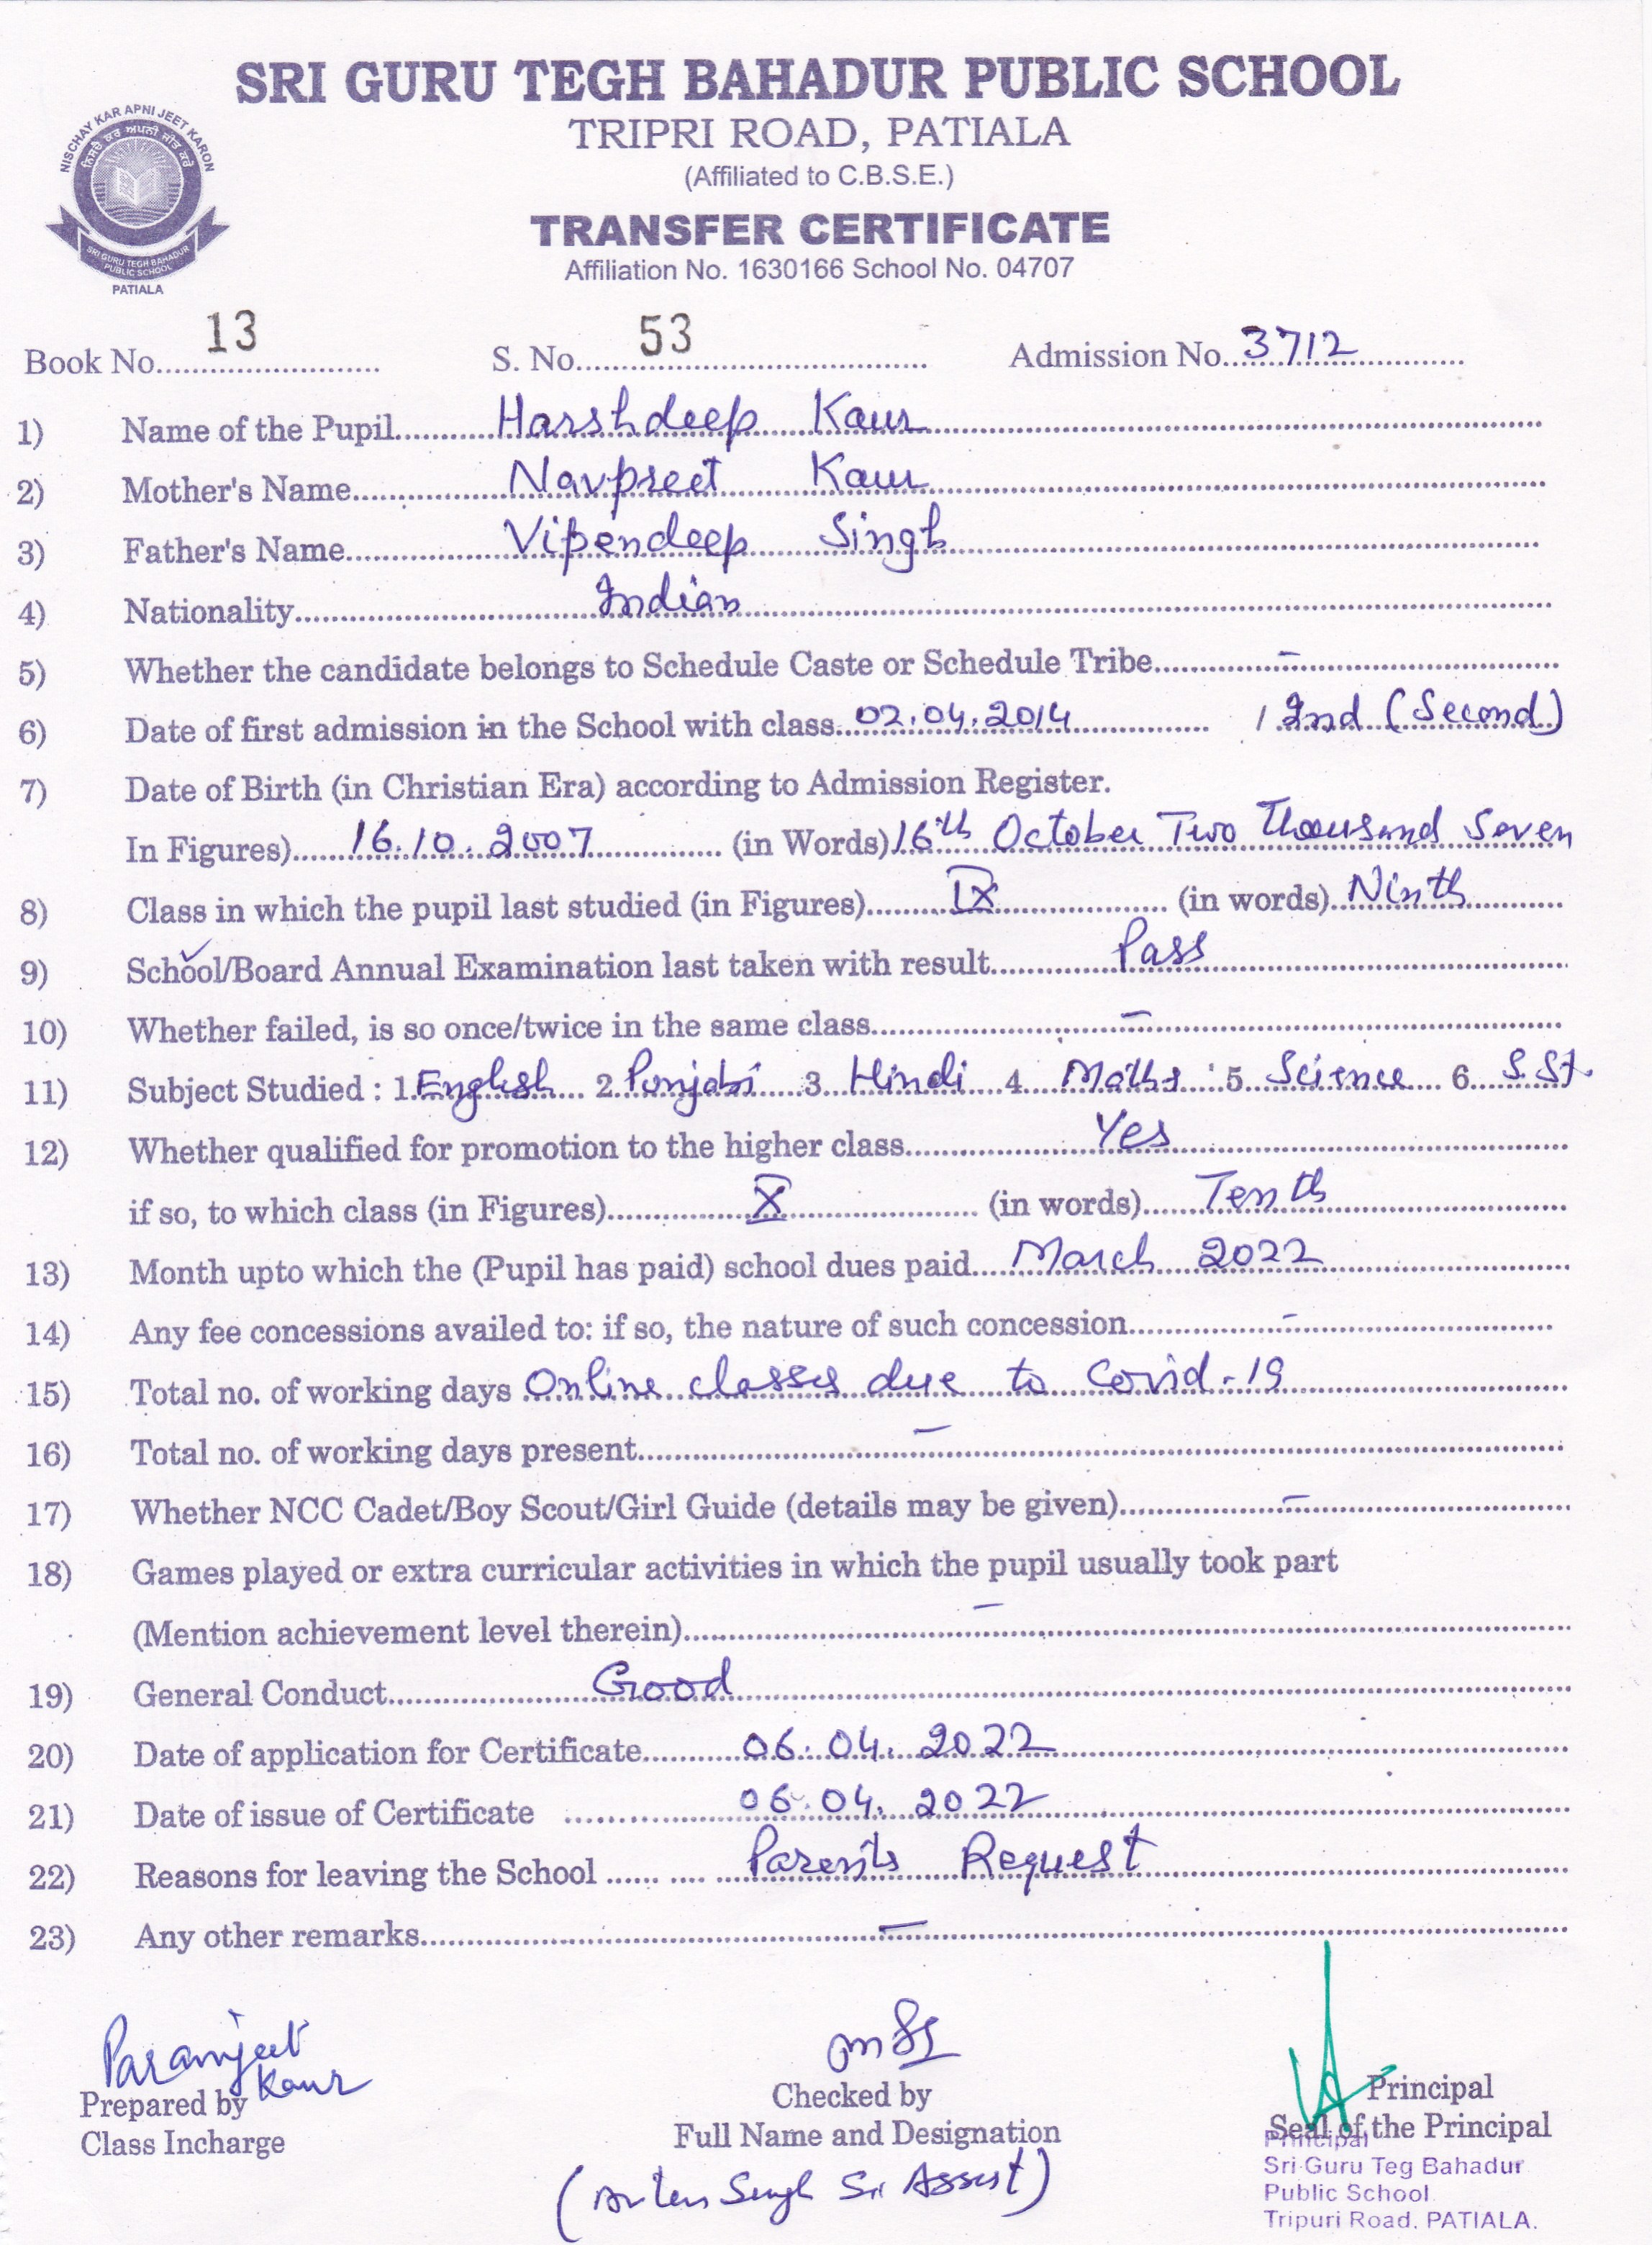 SRI GURU TEGH BAHADUR PUBLIC SCHOOL
TRIPRI ROAD, PATIALA
(Affiliated to C.B.S.E.)
TRANSFER CERTIFICATE
Affiliation No. 1630166 School No. 04707
NISCHAY KAR APNI JEET KARON
ਨਿਸਚੈ ਕਰ ਅਪਨੀ ਜੀਤ ਕਰੋਂ
SRI GURU TEGH BAHADUR
PUBLIC SCHOOL
PATIALA
Book No. 13 S. No. 53 Admission No. 3712
1) Name of the Pupil Harshdeep Kaur
2) Mother's Name Navpreet Kaur
3) Father's Name Vipendeep Singh
4) Nationality Indian
5) Whether the candidate belongs to Schedule Caste or Schedule Tribe –
6) Date of first admission in the School with class 02.04.2014 / 2nd (Second)
7) Date of Birth (in Christian Era) according to Admission Register.
In Figures) 16.10.2007 (in Words) 16th October Two Thousand Seven
8) Class in which the pupil last studied (in Figures) IX (in words) Ninth
9) School/Board Annual Examination last taken with result Pass
10) Whether failed, is so once/twice in the same class –
11) Subject Studied : 1. English 2. Punjabi 3. Hindi 4. Maths 5. Science 6. S.St.
12) Whether qualified for promotion to the higher class Yes
if so, to which class (in Figures) X (in words) Tenth
13) Month upto which the (Pupil has paid) school dues paid March 2022
14) Any fee concessions availed to: if so, the nature of such concession –
15) Total no. of working days Online classes due to Covid-19
16) Total no. of working days present –
17) Whether NCC Cadet/Boy Scout/Girl Guide (details may be given) –
18) Games played or extra curricular activities in which the pupil usually took part
(Mention achievement level therein) –
19) General Conduct Good
20) Date of application for Certificate 06.04.2022
21) Date of issue of Certificate 06.04.2022
22) Reasons for leaving the School Parents Request
23) Any other remarks –
Paramjeet
Kaur
Prepared by
Class Incharge
Checked by
Full Name and Designation
Singh Sr Assist)
Principal
Seal of the Principal
Principal
Sri Guru Teg Bahadur
Public School
Tripuri Road. PATIALA.